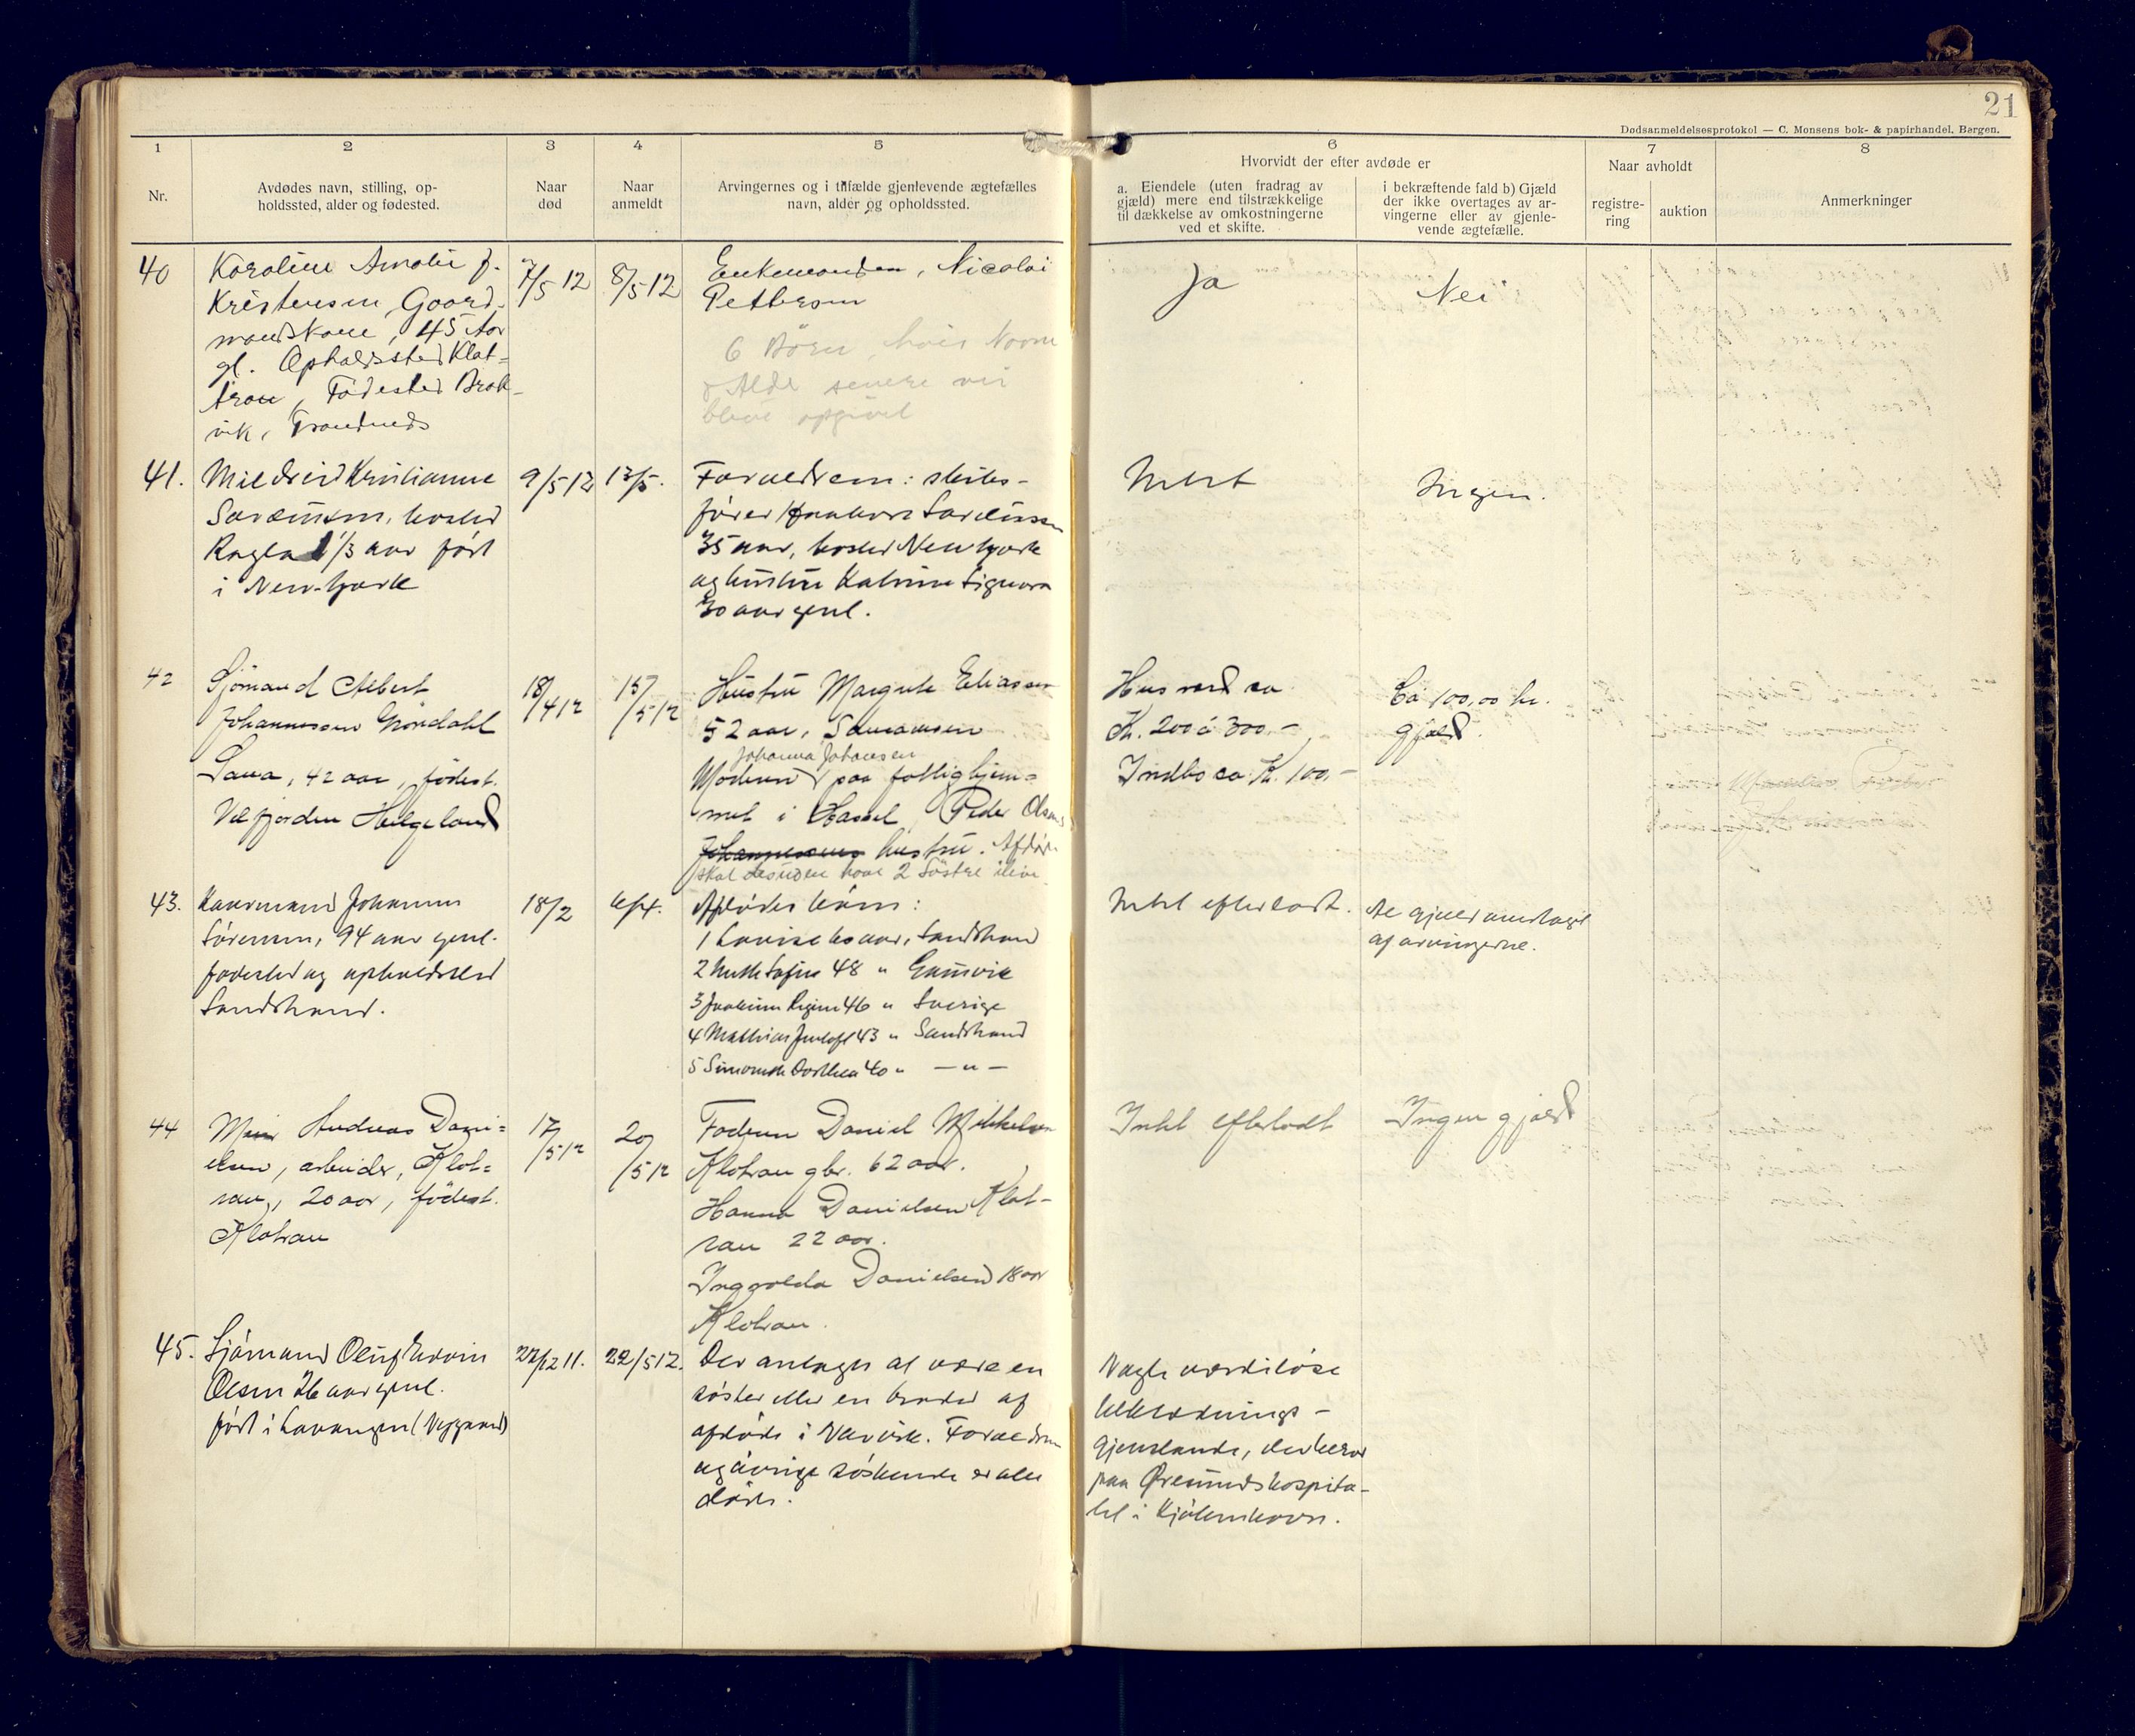 21
Dødsanmeldelsesprotokol — C. Monsens bok- & papirhandel, Bergen.
1
2
3
4
5
6
7
8
Nr.
Avdødes navn, stilling, op-
holdssted, alder og fødested.
Naar
død
Naar
anmeldt
Arvingernes og i tilfælde gjenlevende ægtefælles
navn, alder og opholdssted.
Hvorvidt der efter avdøde er
a. Eiendele (uten fradrag av
gjæld) mere end tilstrækkelige
til dækkelse av omkostningerne
ved et skifte.
i bekræftende fald b) Gjæld
der ikke overtages av ar-
vingerne eller av gjenle-
vende ægtefælle.
Naar avholdt
registre-
ring
auktion
Anmerkninger
40
Karoline Amalie f.
Kristensen, Gaard-
mandskone, 45 Aar
gl. Opholdssted Klat-
tran, Födested Brok-
vik, Trondenæs
7/5 12
8/5 12
Enkemanden, Nicolai
Pettersen
6 Börn, hvis Navne
& Alder senere vil
blive opgivet
Ja
Nei
41.
Mildreid Kristianne
Sørensen, bosted
Rogla 1 1/3 aar født
i New-York
9/5 12
13/5.
Forældrene: skibs-
fører Haakon Sørensen
35 aar, bosted New York
og hustru Katrine Signora
30 aar gml.
Intet
Ingen.
42
Sjömand Albert
Johannessen Gröndahl
Sana, 42 aar, födest.
Velfjorden Helgeland
18/4 12
15/5 12
Hustru Margrete Eliassen
52 aar,
Johanna Johansen
Moderen paa fattighjem-
met i Hassel, Peder Olsens
Johannessens hustru. Afdöde
skal desuden have 2 Söstre ilive.
Hus værd ca.
Kr. 200 à 300.-
Indbo ca Kr. 100,-
Ca 100,00 kr.
gjæld.
43.
Kaarmand Johannes
Sörensen, 94 aar gml.
fødested og opholdssted
Sandstrand.
18/2
6/4.
Afdødes børn:
1 Lovise 60 aar, Sandstrand
2 48 " Grunvik
3 46 " Sverige
4 Mathias 43 " Sandstrand
5 Dorthea 40 " — " —
Intet efterladt.
Al gjæld overtaget
af arvingerne.
44
Andreas Dani-
elsen, arbeider, Klot-
ran, 20 aar, födest.
Klotran
17/5 12
20/5 12
Faderen Daniel Mikkelsen
Klotran gbr. 62 aar.
Hanna Danielsen Klot-
ran 22 aar.
Ingvalda Danielsen 18 aar
Klotran.
Intet efterladt
Ingen gjæld
45.
Sjömand Oluf Edvin
Olsen 26 aar gml.
født i Lavangen
22/12 11.
22/5 12.
Der antages at være en
söster eller en broder af
afdöde i Narvik. Forældrene
og övrige söskende er alle
döde.
Nogle værdilöse
beklædnings-
gjenstande, der beror
paa Øresundshospita-
let i Kjöbenhavn.